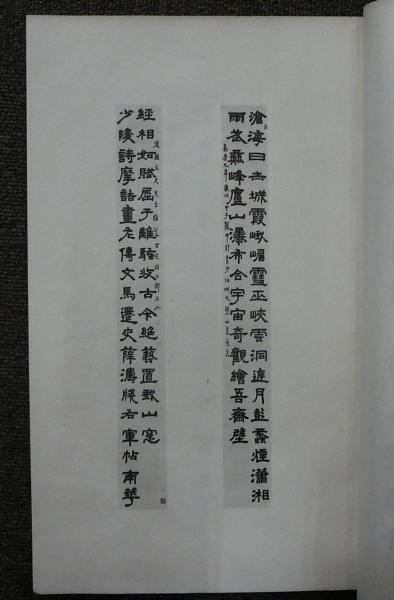 滄海日赤城霞峨嵋雪巫峽雲洞庭月彭蠡煙瀟湘
雨武彝峰廬山瀑布合宇宙奇觀繪吾齋壁
少陵詩摩詰畫左傳文馬遷史薛濤牋右軍帖南華
經相如賦屈子離騷收古今絕藝置我山窗